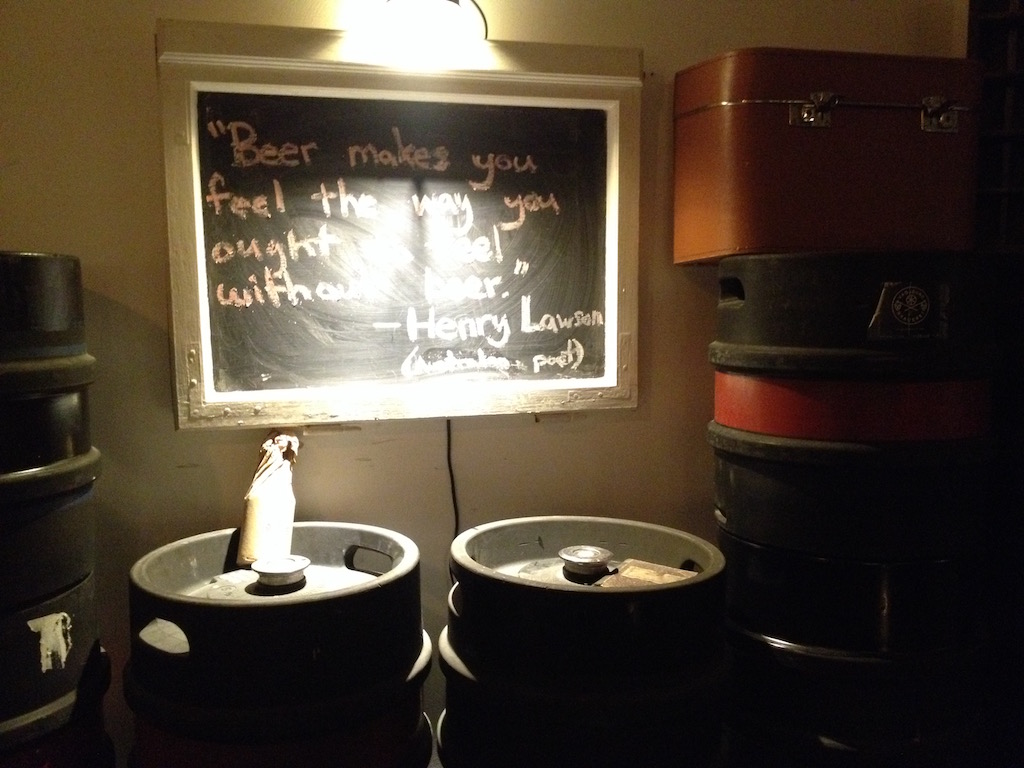 "Beer makes you
feel the way you
ought to feel
without beer."
- Henry Lawson
(Australian poet)